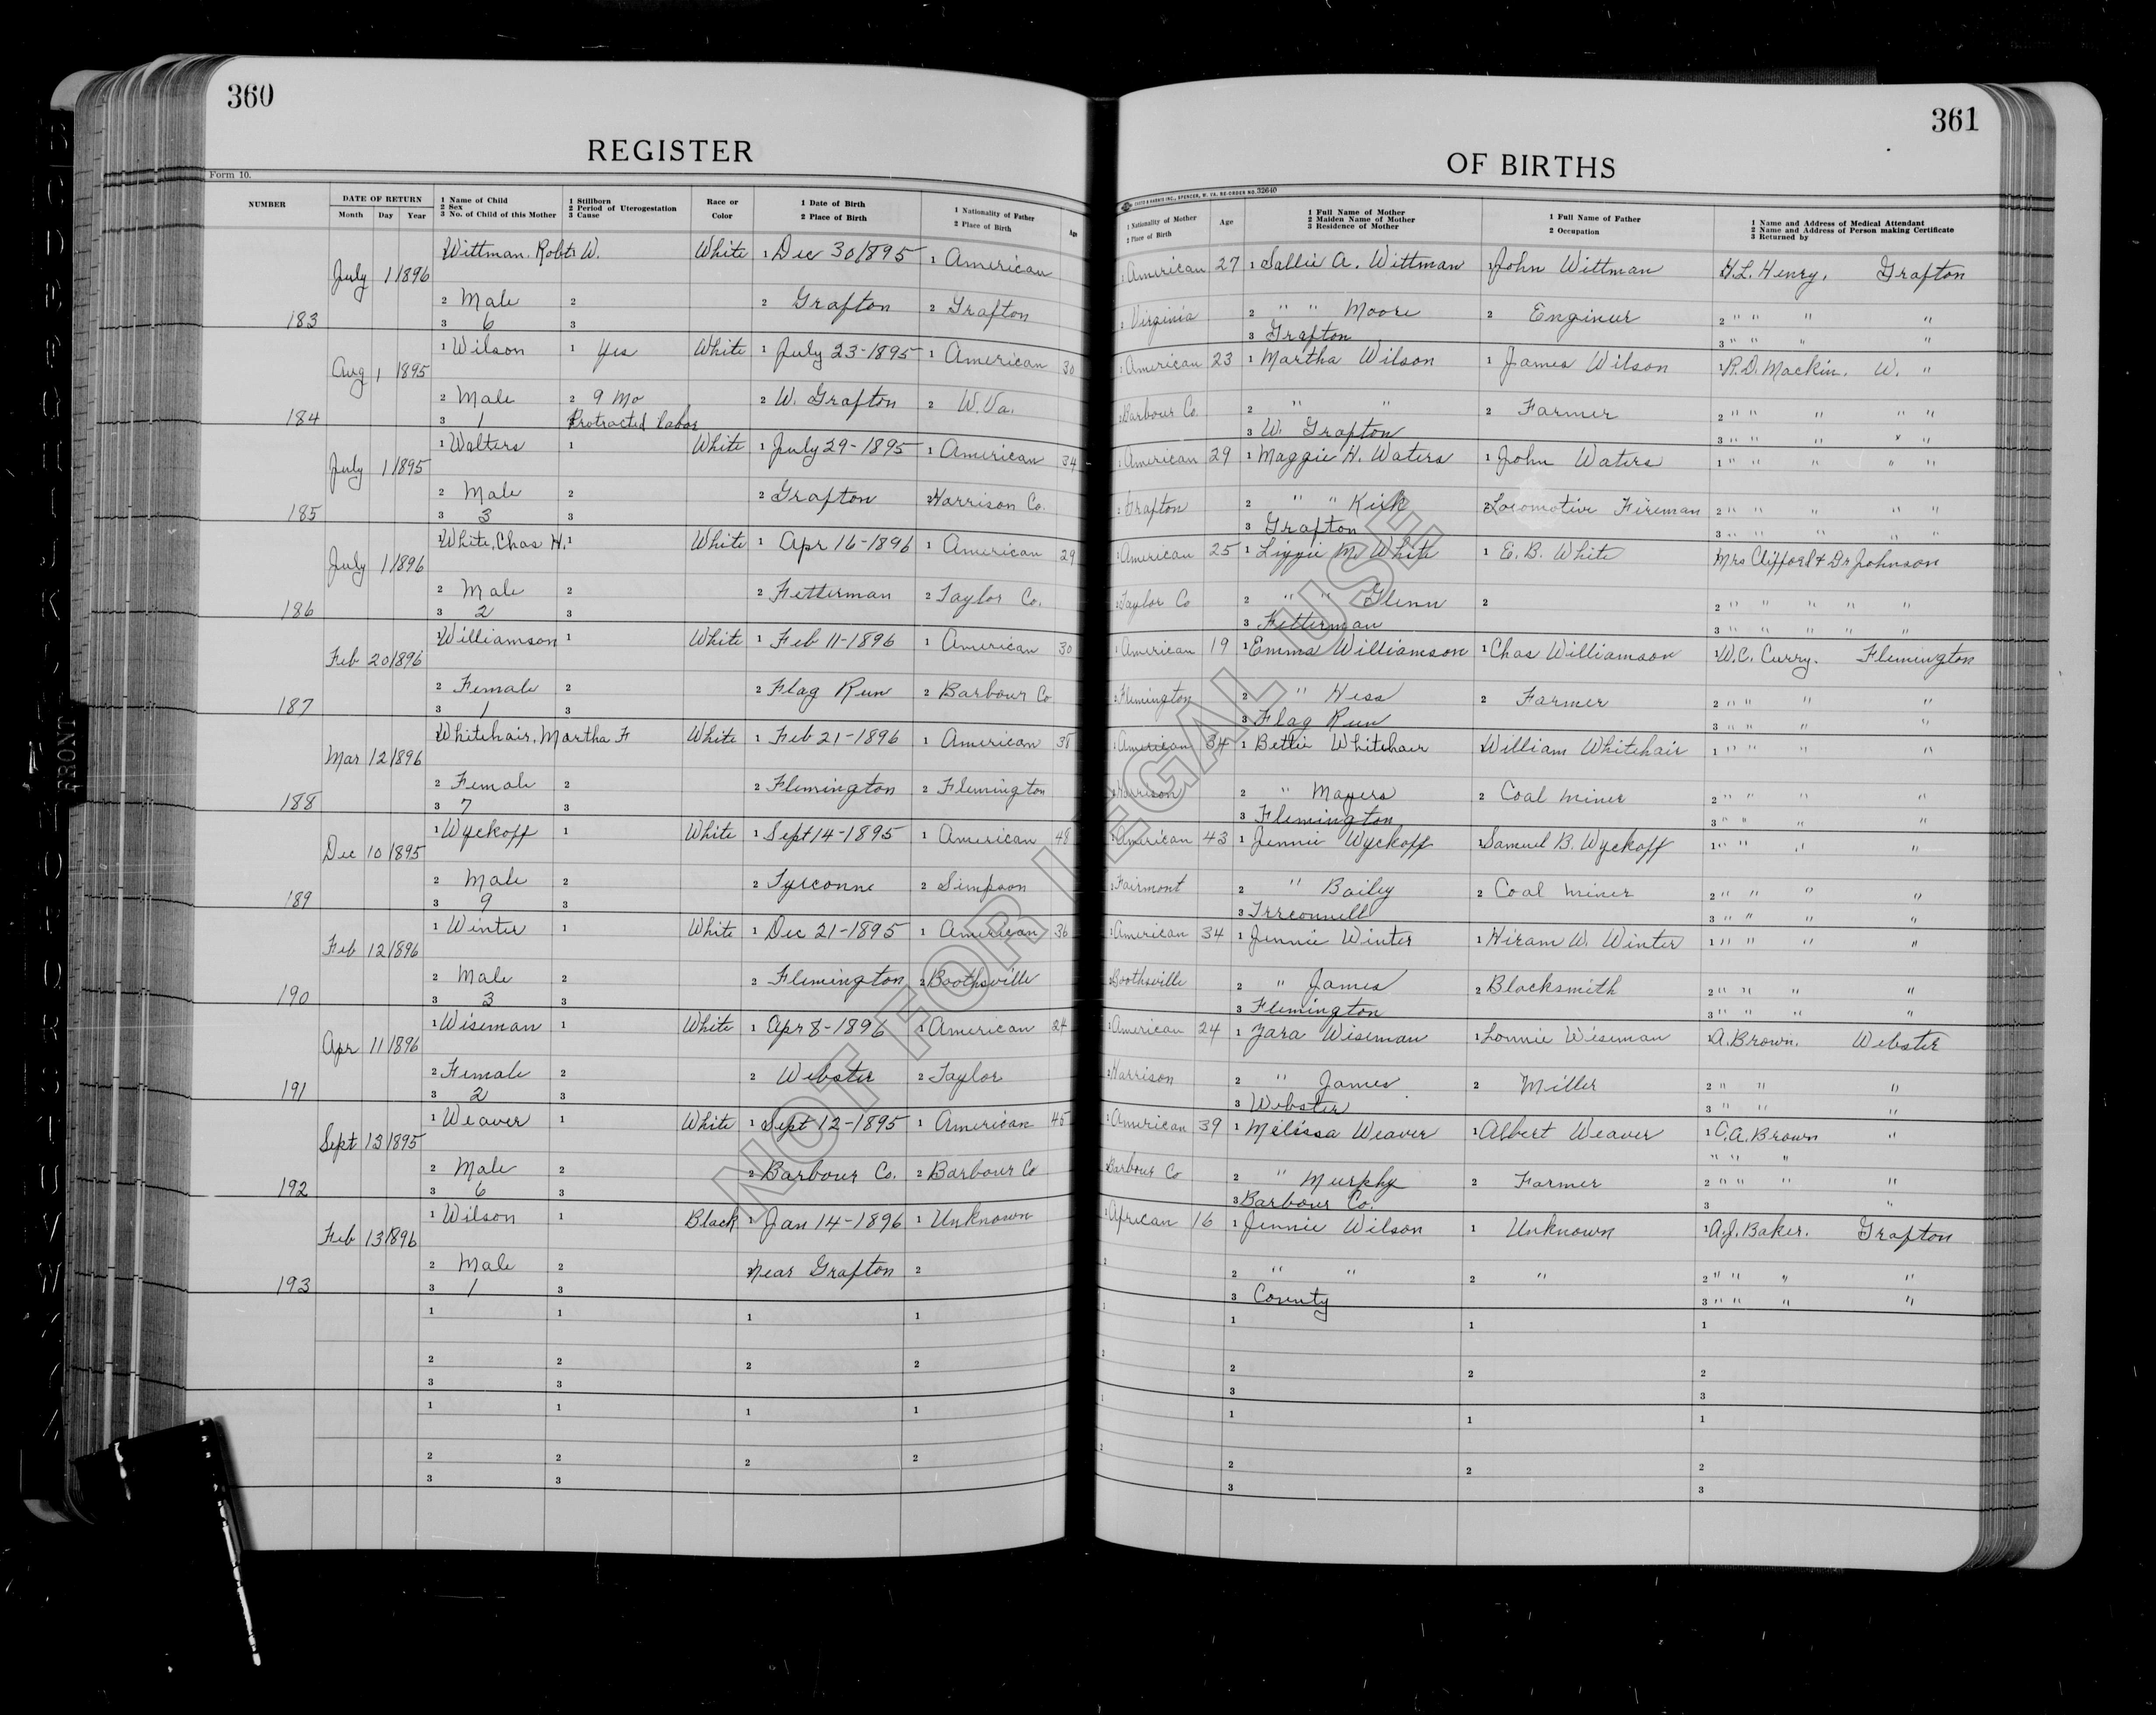 360
361
REGISTER
OF BIRTHS
Form 10.
NUMBER
DATE OF RETURN
Month Day Year
1 Name of Child
2 Sex
3 No. of Child of this Mother
1 Stillborn
2 Period of Uterogestation
3 Cause
Race or
Color
1 Date of Birth
2 Place of Birth
1 Nationality of Father
2 Place of Birth
Age
1 Nationality of Mother
2 Place of Birth
Age
1 Full Name of Mother
2 Maiden Name of Mother
3 Residence of Mother
1 Full Name of Father
2 Occupation
1 Name and Address of Medical Attendant
2 Name and Address of Person making Certificate
3 Returned by
Wittman, Robt. W. White 1 Dec 30 1895 1 American 1 American 27 1 Sallie A. Wittman 1 John Wittman H.L. Henry, Grafton
July 1 1896
2 Male 2 2 Grafton 2 Grafton 2 Virginia 2 " " Moore 2 Engineer 2 " " " "
183 3 6 3 3 Grafton 3 " " " "
1 Wilson 1 Yes White 1 July 23-1895 1 American 30 1 American 23 1 Martha Wilson 1 James Wilson 1 R.D. Mackin. W. "
Aug 1 1895
2 Male 2 9 Mo 2 W. Grafton 2 W. Va. Barbour Co. 2 " " 2 Farmer 2 " " " " "
184 3 1 Protracted labor 3 W. Grafton 3 " " " " "
1 Walters 1 White 1 July 29-1895 1 American 34 1 American 29 1 Maggie H. Waters 1 John Waters 1 " " " " "
July 1 1895
2 Male 2 2 Grafton 2 Harrison Co. 2 Grafton 2 " " Kirk 2 Locomotive Fireman 2 " " " " "
185 3 3 3 3 Grafton 3 " " " " "
White, Chas H. 1 White 1 Apr 16-1896 1 American 29 1 American 25 1 Lizzie M. White 1 E. B. White Mrs Clifford & Dr Johnson
July 1 1896
2 Male 2 2 Fetterman 2 Taylor Co. 2 Taylor Co 2 " " Glenn 2 2 " " " " "
186 3 2 3 3 Fetterman 3 " " " " "
1 Williamson 1 White 1 Feb 11-1896 1 American 30 1 American 19 1 Emma Williamson 1 Chas Williamson 1 W.C. Curry. Flemington
Feb 20 1896
2 Female 2 2 Flag Run 2 Barbour Co 2 Flemington 2 " Hess 2 Farmer 2 " " " "
187 3 1 3 3 Flag Run 3 " " " "
Whitehair, Martha F White 1 Feb 21-1896 1 American 38 1 American 34 1 Bettie Whitehair William Whitehair 1 " " " "
Mar 12 1896
2 Female 2 2 Flemington 2 Flemington Harrison 2 " Mayers 2 Coal miner 2 " " " "
188 3 7 3 3 Flemington 3 " " " "
1 Wyckoff 1 White 1 Sept 14-1895 1 American 48 1 American 43 1 Jennie Wyckoff 1 Samuel B. Wyckoff 1 " " " "
Dec 10 1895
2 Male 2 2 Tyrconne 2 Simpson 2 Fairmont 2 " Bailey 2 Coal miner 2 " " " "
189 3 9 3 3 Trrconnell 3 " " " "
1 Winter 1 White 1 Dec 21-1895 1 American 36 1 American 34 1 Jennie Winter 1 Hiram W. Winter 1 " " " "
Feb 12 1896
2 Male 2 2 Flemington 2 Boothsville 2 Boothsville 2 " James 2 Blacksmith 2 " " " "
190 3 3 3 3 Flemington 3 " " " "
1 Wiseman 1 White 1 Apr 8-1896 1 American 24 1 American 24 1 Zara Wiseman 1 Lonnie Wiseman A. Brown. Webster
Apr 11 1896
2 Female 2 2 Webster 2 Taylor 2 Harrison 2 " James 2 Miller 2 " " "
191 3 2 3 3 Webster 3 " " "
1 Weaver 1 White 1 Sept 12-1895 1 American 45 1 American 39 1 Melissa Weaver 1 Albert Weaver 1 C.A. Brown "
Sept 13 1895 " " "
2 Male 2 2 Barbour Co. 2 Barbour Co Barbour Co 2 " Murphy 2 Farmer 2 " " " "
192 3 6 3 3 Barbour Co. 3 "
1 Wilson 1 Black 1 Jan 14-1896 1 Unknown 1 African 16 1 Jennie Wilson 1 Unknown 1 A.J. Baker. Grafton
Feb 13 1896
2 Male 2 Near Grafton 2 2 2 " " 2 " 2 " " " "
193 3 1 3 3 County 3 " " " "
1 1 1 1 1 1 1 1
2 2 2 2 2 2 2 2
3 3 3 3
1 1 1 1 1 1 1 1
2 2 2 2 2 2 2 2
3 3 3 3
NOT FOR LEGAL USE
FRONT